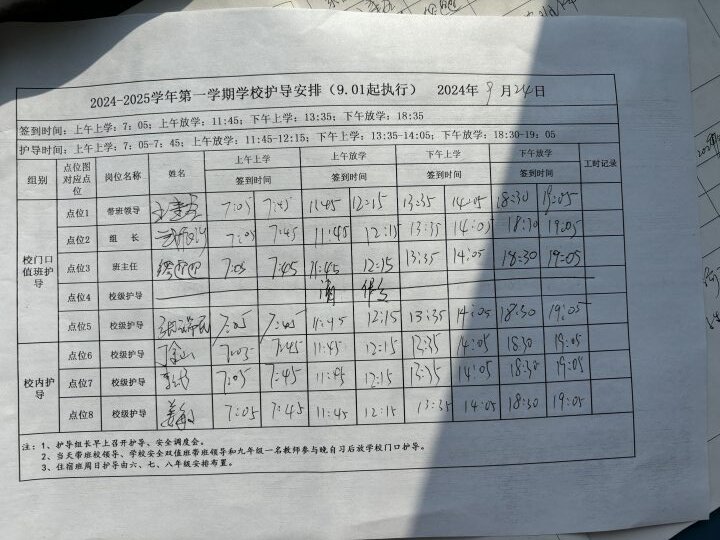 2024-2025学年第一学期学校护导安排（9.01起执行） 2024年 9 月 24 日
签到时间：上午上学：7：05；上午放学：11:45；下午上学：13:35；下午放学：18:35
护导时间：上午上学：7：05-7：45；上午放学：11:45-12:15；下午上学：13:35-14:05；下午放学：18:30-19：05
组别 点位图对应点位 岗位名称 姓名 上午上学 上午放学 下午上学 下午放学 工时记录
签到时间 签到时间 签到时间 签到时间
校门口值班护导
点位1 带班领导 7:05 7:45 11:45 12:15 13:35 14:05 18:30 19:05
点位2 组 长 7:05 7:45 11:45 12:15 13:35 14:05 18:30 19:05
点位3 班主任 7:05 7:45 11:45 12:15 13:35 14:05 18:30 19:05
点位4 校级护导
点位5 校级护导 7:05 7:45 11:45 12:15 13:35 14:05 18:30 19:05
校内护导
点位6 校级护导 7:05 7:45 11:45 12:15 13:35 14:05 18:30 19:05
点位7 校级护导 7:05 7:45 11:45 12:15 13:35 14:05 18:30 19:05
点位8 校级护导 7:05 7:45 11:45 12:15 13:35 14:05 18:30 19:05
注：1、护导组长早上召开护导、安全调度会。
2、当天带班校领导、学校安全双值班带班领导和九年级一名教师参与晚自习后放学校门口护导。
3、住宿班周日护导由六、七、八年级安排布置。